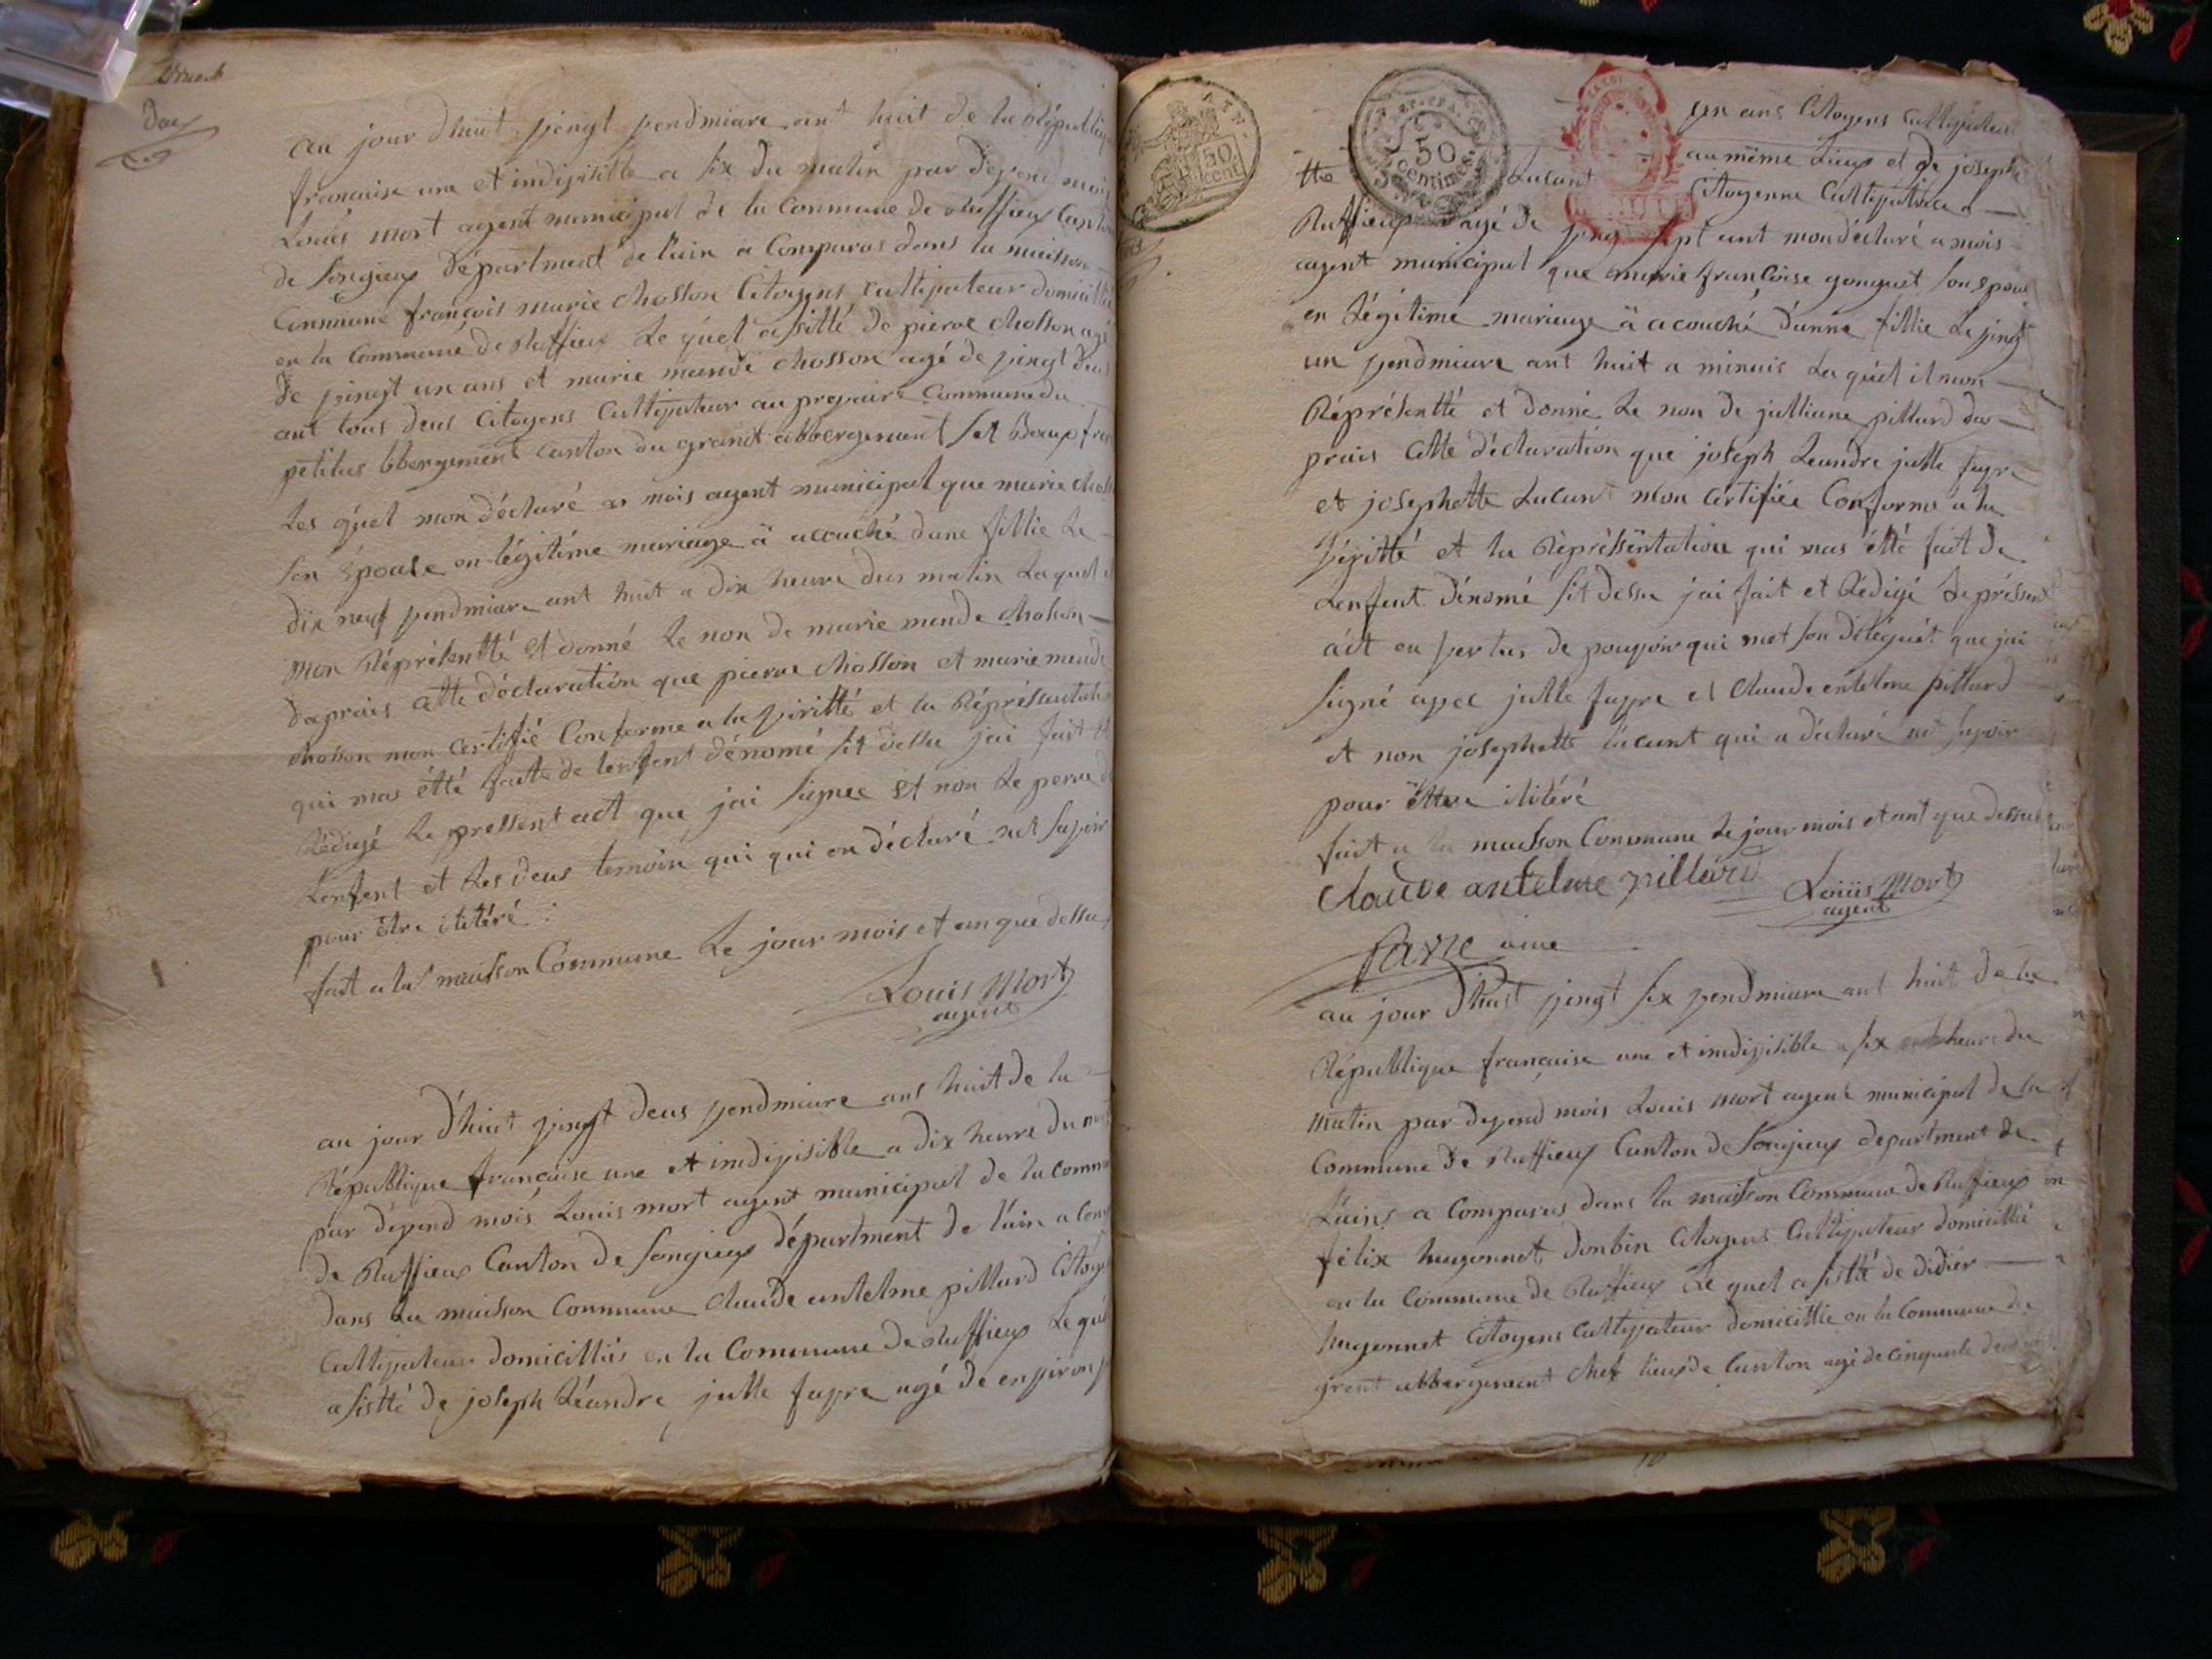 Deux
au jour d'huit vingt vendmiare ant huit de la Républiq
francaise une et indivisible a six du matin par devend mois
Louis mort agent municipal de la commune de Ruffieux Canton
de songieux Département de l'ain a Comparus dans la maison
Commune françois marie chosson Citoyens cultivateur domicillié
en la Commune de Ruffieux Le quel a sitté de pierre chosson agé
de vingt un ans et marie mande chosson agé de vingt deus
ant tous deus Citoyens Cultivateur au Commune du
petitus bbergement canton du grand abbergement set Beaux
Les quel mon déclaré a mois agent municipal que marie choss
son épouse en légitime mariage à acouché dune fillie Le
dix neuf vendmiare ant huit a dix heure dus matin Laquel
mon Réprésentté et donné Le non de marie mande chosson
daprais cette déclaration que pierre chosson et marie mande
chosson mon certifié Conforme a la viritté et la Représsentati
qui mas étté faite de lenfent dénomé sit dessu jai fait et
Rédigé Le pressent act que jai signee et non Le perre de
Lenfent et Les deus temoin qui qui on déclaré net savoir
pour être ilitéré :
fait a la maisson Commune Le jour mois et an que dessu
Louis Mort
agent
au jour d'huit vingt deus vendmiare ans huit de la
République francaise une et imdivisible a dix heure du
par dévend mois Louis mort agent municipal de la comm
de Ruffieux Canton de songieux département de l'ain a com
dans La maison Commune Claude antelme pillard Citoy
Cultivateur domicilliés en la Commune de Ruffieux Le qu
a sistté de joseph Léandre jutte favre agé de environ
AN.
50
cent.
50
Centimes
un ans Citoyens Cultivateu
au même Lieux et de joseph
tte Lucant Citoyenne Cultivatrice a
Ruffieux agé de vingt sept ant mon déclaré a mois
agent municipal que marie françoise gonguet son epous
en Légitime mariage à acouché dunne fillie Le vingt
un vendmiare ant huit a minuis La quél il mon
Réprésentté et donné Le non de julliane pillard da
prais cette déclaration que joseph Leandre jutte favre
et josephette Lucant mon certifiée Conforme a la
Véritté et la Représsëntation qui mas étté fait de
Lenfent dénomé sit dessu jai fait et Rédigé Le préssent
act en vertus de pouvoir qui met son déléguét que jai
signé avec jutte favre et Claude entelme pillard
et non josephette Lucant qui a déclaré né savoir
pour être ilitéré
fait a la maisson Commune Le jour mois et ant que dessu
Claude antelme pillard
Louis Mort
agent
favre
au jour d'huit vingt six vendmiare ant huit de la
République francaise une et imdivisible a six heure du
matin par devend mois Louis mort agent municipal de la
Commune de Ruffieux Canton de songieux department de
L'ains a Comparus dans la maisson Commune de Ruffieux
félix hugonnet donbin Citoyens Cultivateur domicillié
en la Commune de Ruffieux Le quel a sistté de didier
hugonnet Citoyens Cultivateur domicillié en la Commune du
grent abbergement chef lieux de Canton agé de cinquante deus